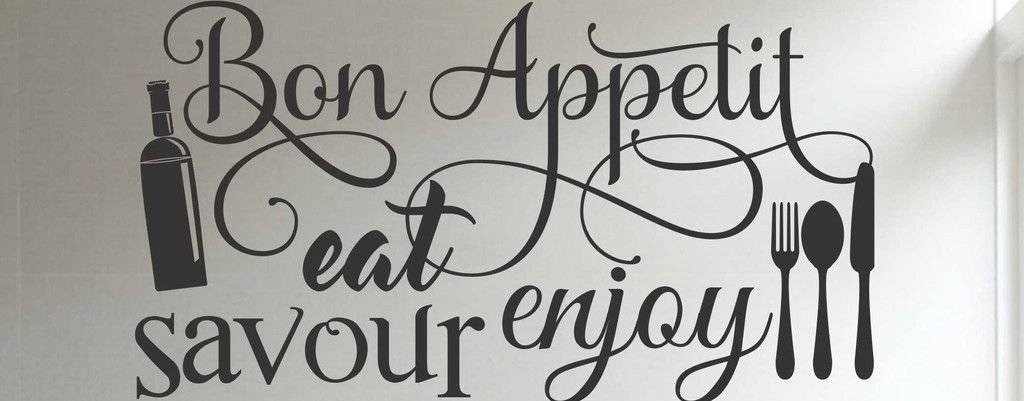 Bon Appetit
eat
savour enjoy